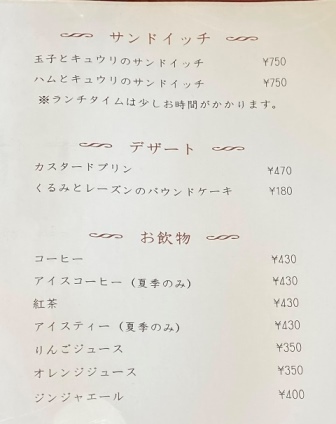 サンドイッチ
玉子とキュウリのサンドイッチ ¥750
ハムとキュウリのサンドイッチ ¥750
※ランチタイムは少しお時間がかかります。
デザート
カスタードプリン ¥470
くるみとレーズンのパウンドケーキ ¥180
お飲物
コーヒー ¥430
アイスコーヒー (夏季のみ) ¥430
紅茶 ¥430
アイスティー (夏季のみ) ¥430
りんごジュース ¥350
オレンジジュース ¥350
ジンジャエール ¥400